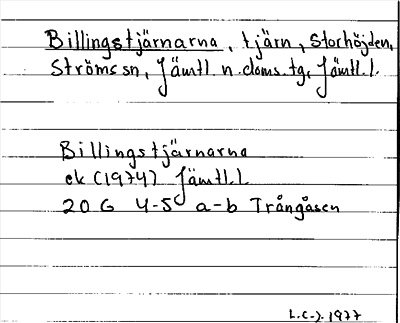 Billingstjärnarna, tjärn, Storhöjden,
Ströms sn, Jämtl. n. doms. tg, Jämtl. l.
Billingstjärnarna
ek (1974) Jämtl. l.
20 G 4-5 a-b Trångåsen
L.C-J. 1977